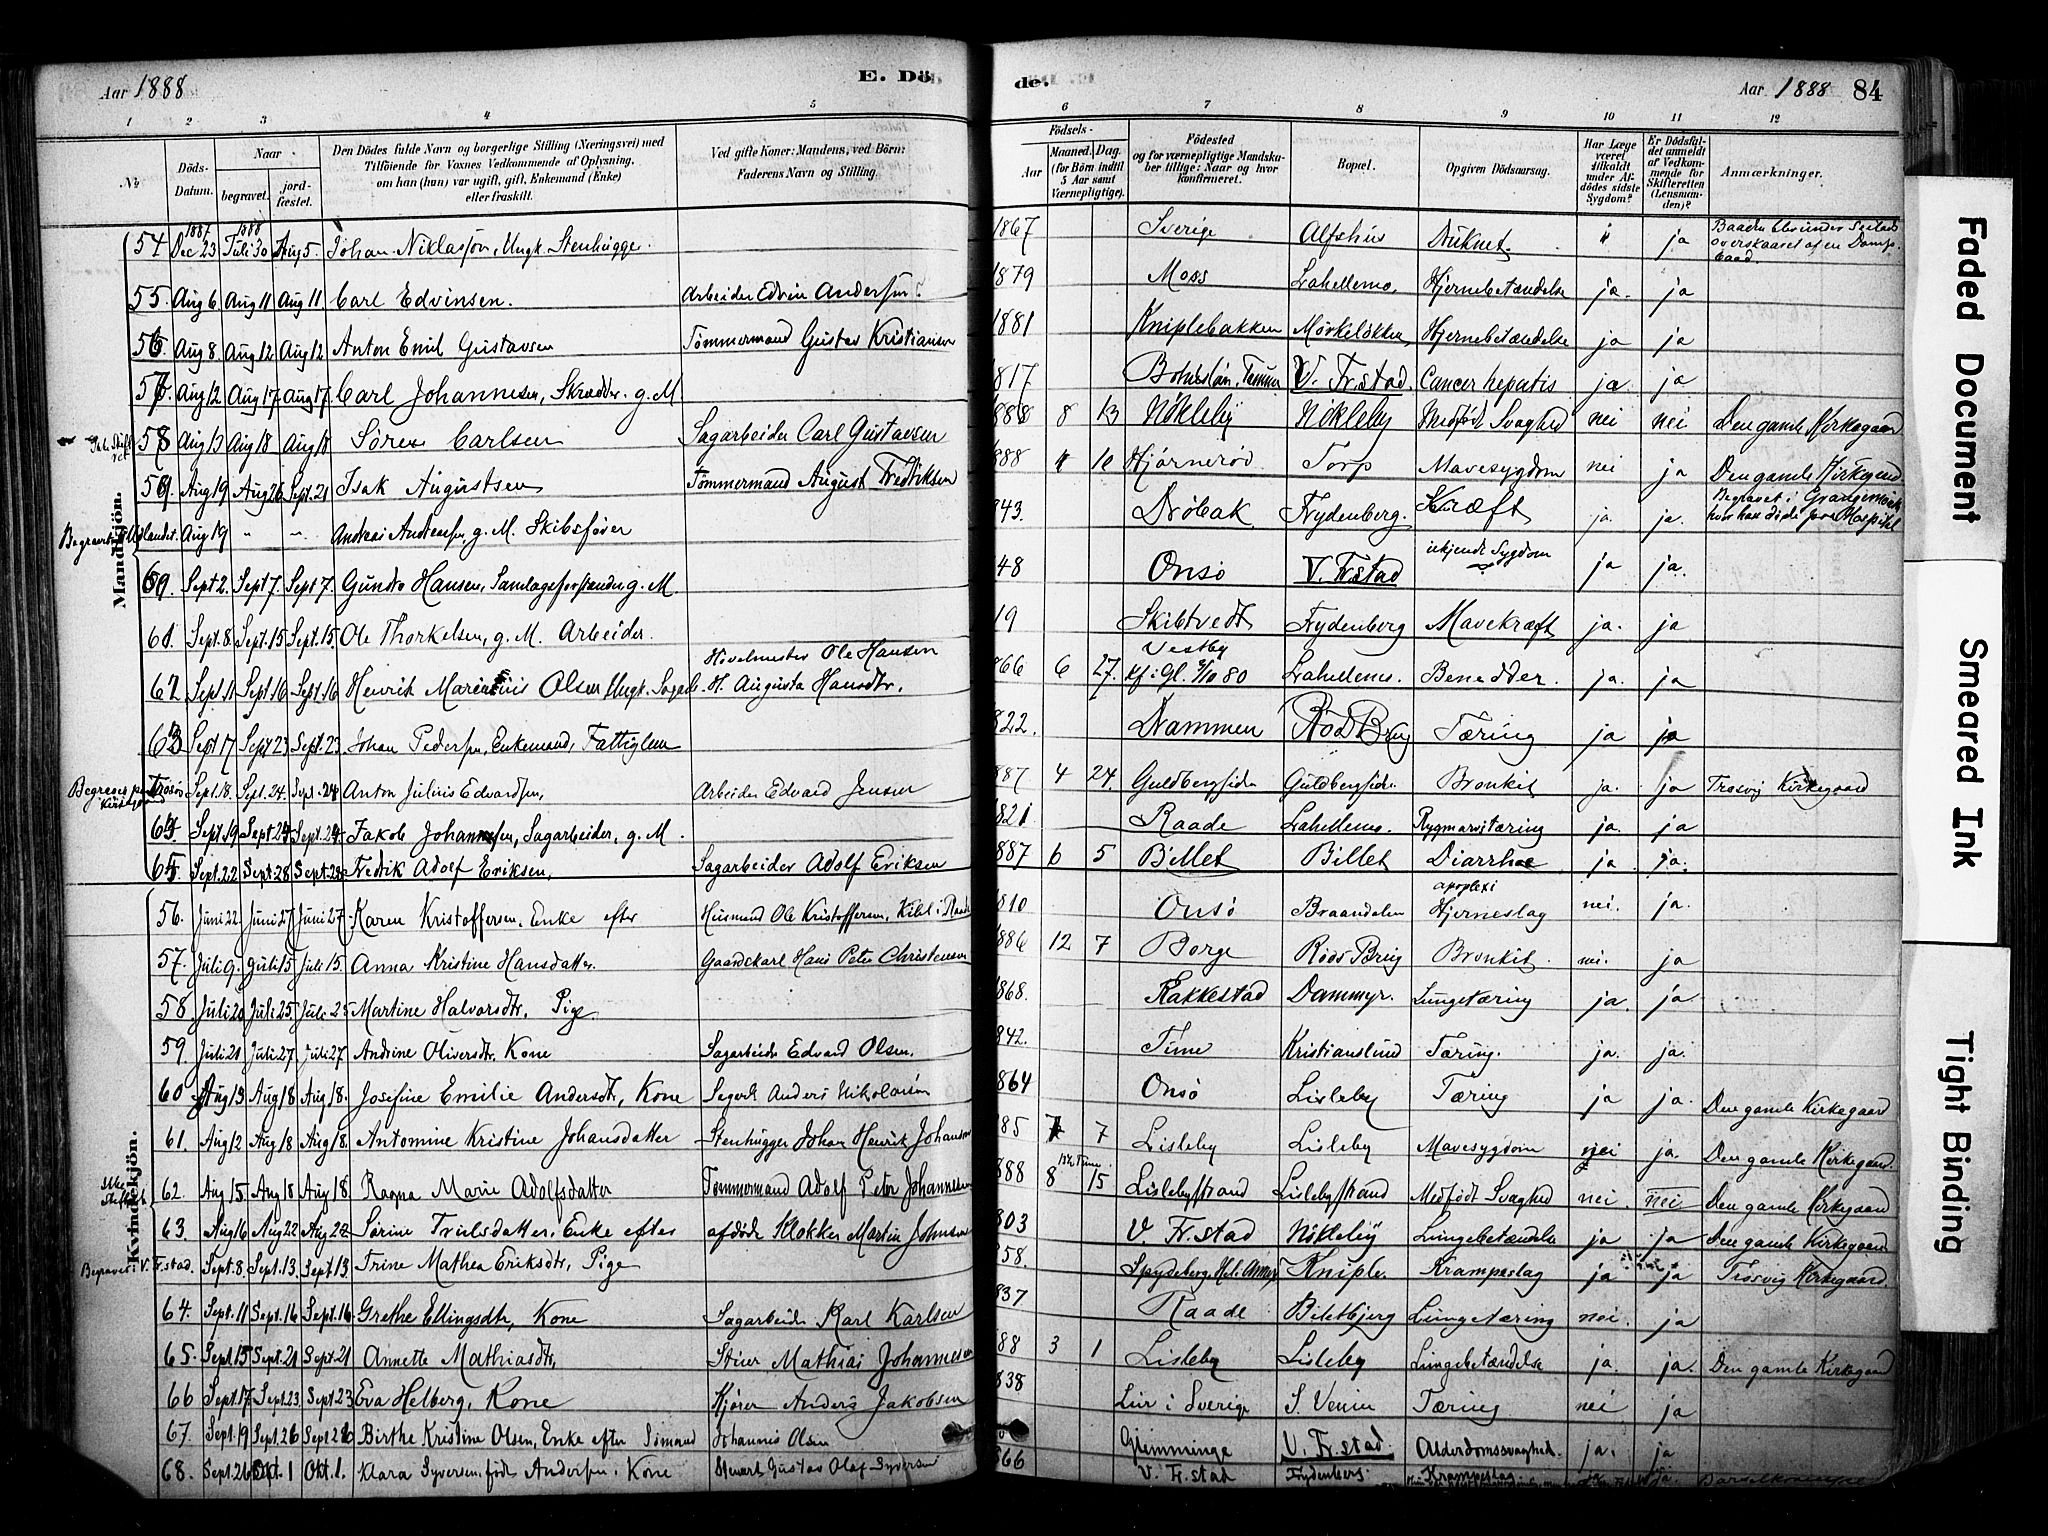 Aar 1888
E. Dö
de.
Aar 1888 84
1 2 3 4 5 6 7 8 9 10 11 12
No
Döds-Datum.
Naar
begravet.
jordfæstet.
Den Dödes fulde Navn og borgerlige Stilling (Næringsvei) med
Tilföiende for Voxnes Vedkommende af Oplysning,
om han (hun) var ugift, gift, Enkemand (Enke)
eller fraskilt.
Ved gifte Koner: Mandens, ved Börn:
Faderens Navn og Stilling.
Födsels-
Aar
Maaned. Dag.
(for Börn indtil 5 Aar samt Værnepligtige).
Födested
og for værnepligtige Mandskaber tillige: Naar og hvor konfirmeret.
Bopæl.
Opgiven Dödsaarsag.
Har Læge været tilkaldt under Afdödes sidste Sygdom?
Er Dödsfaldet anmeldt af Vedkommende for Skifteretten (Lensmanden)?
Anmærkninger.
Mandkjön.
54 1887 Dec 23 1888 Juli 30 Aug 5. Johan Niklasson, Ungk. Stenhugge. 1867 Sverige Alfshus Druknet. " ja Baaden blev under Seilads overskaaret af en Dampbaad.
55 Aug 6 Aug 11 Aug 11 Carl Edvinsen. Arbeider Edvin Andersen. 1879 Moss Lahellemo. Hjernebetændelse ja. ja
56 Aug 8 Aug 12 Aug 12 Anton Emil Gustavsen Tömmermand Gustav Kristiansen 1881 Kniplebakken Mörkeløkken, Hjernebetændelse ja ja
57 Aug 12 Aug 17 Aug 17 Carl Johannesen, Skrædder. g. M 1817 V. Fr.stad. Cancer hepatis ja. ja
58 Aug 13 Aug 18 Aug 18 Sören Carlsen Sagarbeider Carl Gustavsen 888 8 13 Nökleby Nökleby Medfödt Svaghed nei nei Den gamle Kirkegaard
59 Aug 19 Aug 26 Sept. 21 Isak Augustsen Tömmermand August Fredriksen 888 Hjörneröd Torp Mavesygdom nei ja Den gamle Kirkegaard.
Aug 19 " " Andreas Andersen, g. M. Skibsförer 843. Dröbak Frydenberg. Kræft ja. ja. Begravet i hvor han döde paa Hospital
69 Sept 2. Sept 7. Sept 7. Gunder Hansen, g. M. 48 Onsö V. Fr.stad Sygdom ja ja.
61. Sept. 8 Sept. 15 Sept. 15. Ole Thorkelsen, g. M. Arbeider. 19 Skibtvedt Frydenberg Mavekræft ja. ja
62 Sept 11 Sept 16 Sept 16 Henrik Olsen Ungk. Hövelmester Ole Hansen H. Augusta Hansdtr. 866 6 27. Vestby Lahellemo. Benedder. ja. ja
63 Sept 17 Sept 23 Sept. 23 Johan Pedersen, Enkemand, Fattiglem 822. Drammen Röds Brug Tæring ja ja
Sept. 18. Sept. 24. Sept. 24 Anton Julius Edvardsen, Arbeider Edvard Jensen 887 4 24. Guldbergsiden Guldbergsiden Bronkit ja. ja Trosvig Kirkegaard
64. Sept. 19 Sept 24 Sept. 24 Jakob Johannesen, Sagarbeider, g. M. 821 Raade Lahellemo. Rygmarvstæring ja. ja
65. Sept. 22 Sept. 28 Sept. 28 Fredrik Adolf Eriksen, Sagarbeider Adolf Eriksen 887 6 5 Billet Billet Diarrhoe ja ja.
Kvindekjön.
56. Juni 22. Juni 27 Juni 27. Karen Kristoffersen, Enke efter Husmand Ole Kristoffersen, i Raade 1810 Onsö Braandalen apoplexi Hjerneslag nei. ja.
57. Juli 9. Juli 15 Juli 15. Anna Kristine Hansdatter. Gaardskarl Hans Peter Christensen 886 12 7 Borge Röds Brug Bronkit. nei. ja
58. Juli 20 Juli 25. Juli 25 Martine Halvorsdtr, Pige. 868. Rakkestad Dammyr. Lungetæring ja. ja
59. Juli 21 Juli 27 Juli 27 Andrine Oliversdtr. Kone Sagarbeider Edvard Olsen. 842. Tune Kristianslund Tæring. ja. ja.
60. Aug 13 Aug 18 Aug 18. Josefine Emilie Andersdtr, Kone Sagarb. Anders Nikolaisen 864 Onsö Lisleby Tæring ja ja. Den gamle Kirkegaard
61. Aug 12 Aug 18 Aug 18. Antomine Kristine Johansdatter Stenhugger Johan Henrik Johansen 85 7 Lisleby Lisleby Mavesygdom nei ja. Den gamle Kirkegaard.
62. Aug 15 Aug 18 Aug 18 Ragna Marie Adolfsdatter Tömmermand Adolf Peter Johannesen 888 8 15 Lislebystrand Lislebystrand Medfödt Svaghed nei. nei Den gamle Kirkegaard
63. Aug 16 Aug 22 Aug 22 Sörine Truelsdatter, Enke efter afdöde Klokker Martin Johnsen 803 V. Fr.stad Nökleby Lungebetændelse ja ja Den gamle Kirkegaard
Begravet i V. Fr.stad. Sept. 8. Sept. 13. Sept. 13. Trine Mathea Eriksdtr, Pige 858. Spydeberg. Kniple. Krampeslag ja ja Trosvig Kirkegaard.
64. Sept. 11 Sept 16 Sept 16. Grethe Ellingsdtr, Kone Sagarbeider Karl Karlsen 837 Raade Biletbjerg Lungetæring nei. ja
65. Sept. 15 Sept. 21 Sept 21 Annette Mathiasdtr, Mathias Johannesen 888 3 1 Lisleby Lisleby Lungebetændelse ja. ja. Den gamle Kirkegaard
66 Sept. 17. Sept. 23. Sept. 23 Eva Helberg, Kone Kjörer Anders Jakobsen 838 i Sverige Tæring nei ja
67. Sept. 19 Sept. 26 Sept. 26 Birthe Kristine Olsen, Enke efter Sömand Johannis Olsen Glemminge V. Fr.stad. Alderdomssvaghed. ja. ja
68. Sept. 26 Okt. 1 Okt. 1. Klara Syversen, född Andersen, Kone Stuert Gustav Olaf Syversen 866 V. Fr.stad Frydenberg. Krampeslag ja.
Faded Document
Smeared Ink
Tight Binding